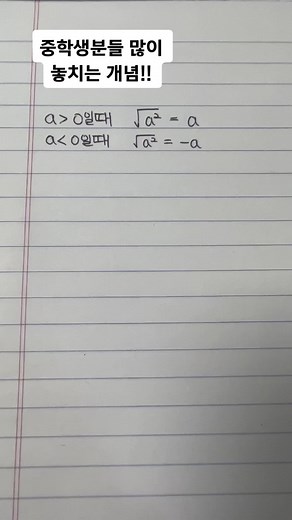 중학생분들 많이
놓치는 개념!!
a > 0일때 √a² = a
a < 0일때 √a² = -a